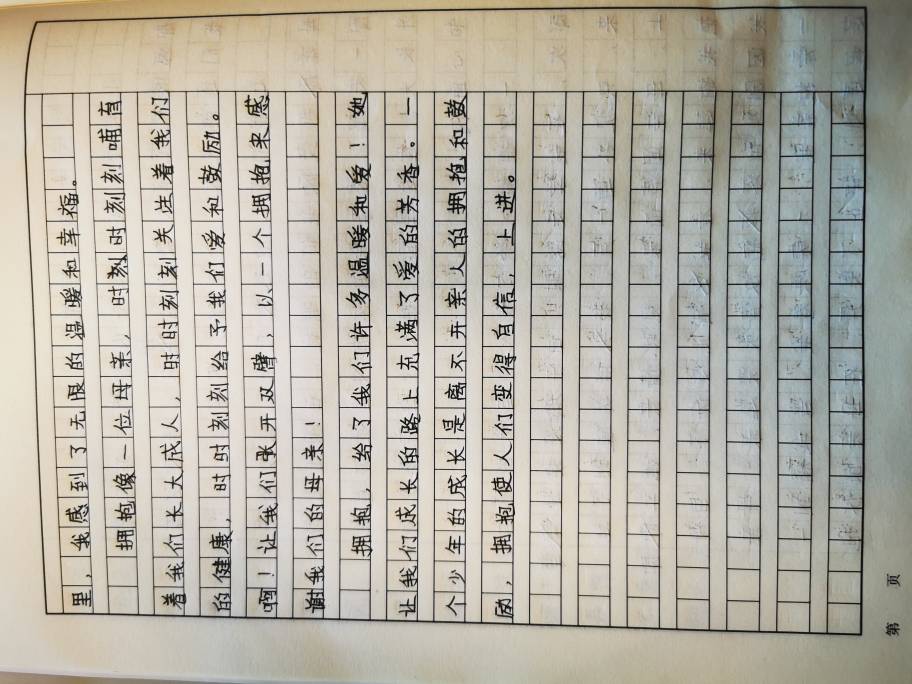 里，我感到了无限的温暖和幸福。
拥抱像一位母亲，时刻时刻哺育
着我们长大成人，时时刻刻关注着我们
的健康，时时刻刻给予我们爱和鼓励。
啊！让我们张开双臂，以一个拥抱来感
谢我们的母亲！
拥抱，给了我们许多温暖和爱！她
让我们成长的路上充满了爱的芳香。一
个少年的成长是离不开亲人的拥抱和鼓
励，拥抱使人们变得自信，上进。
第 页